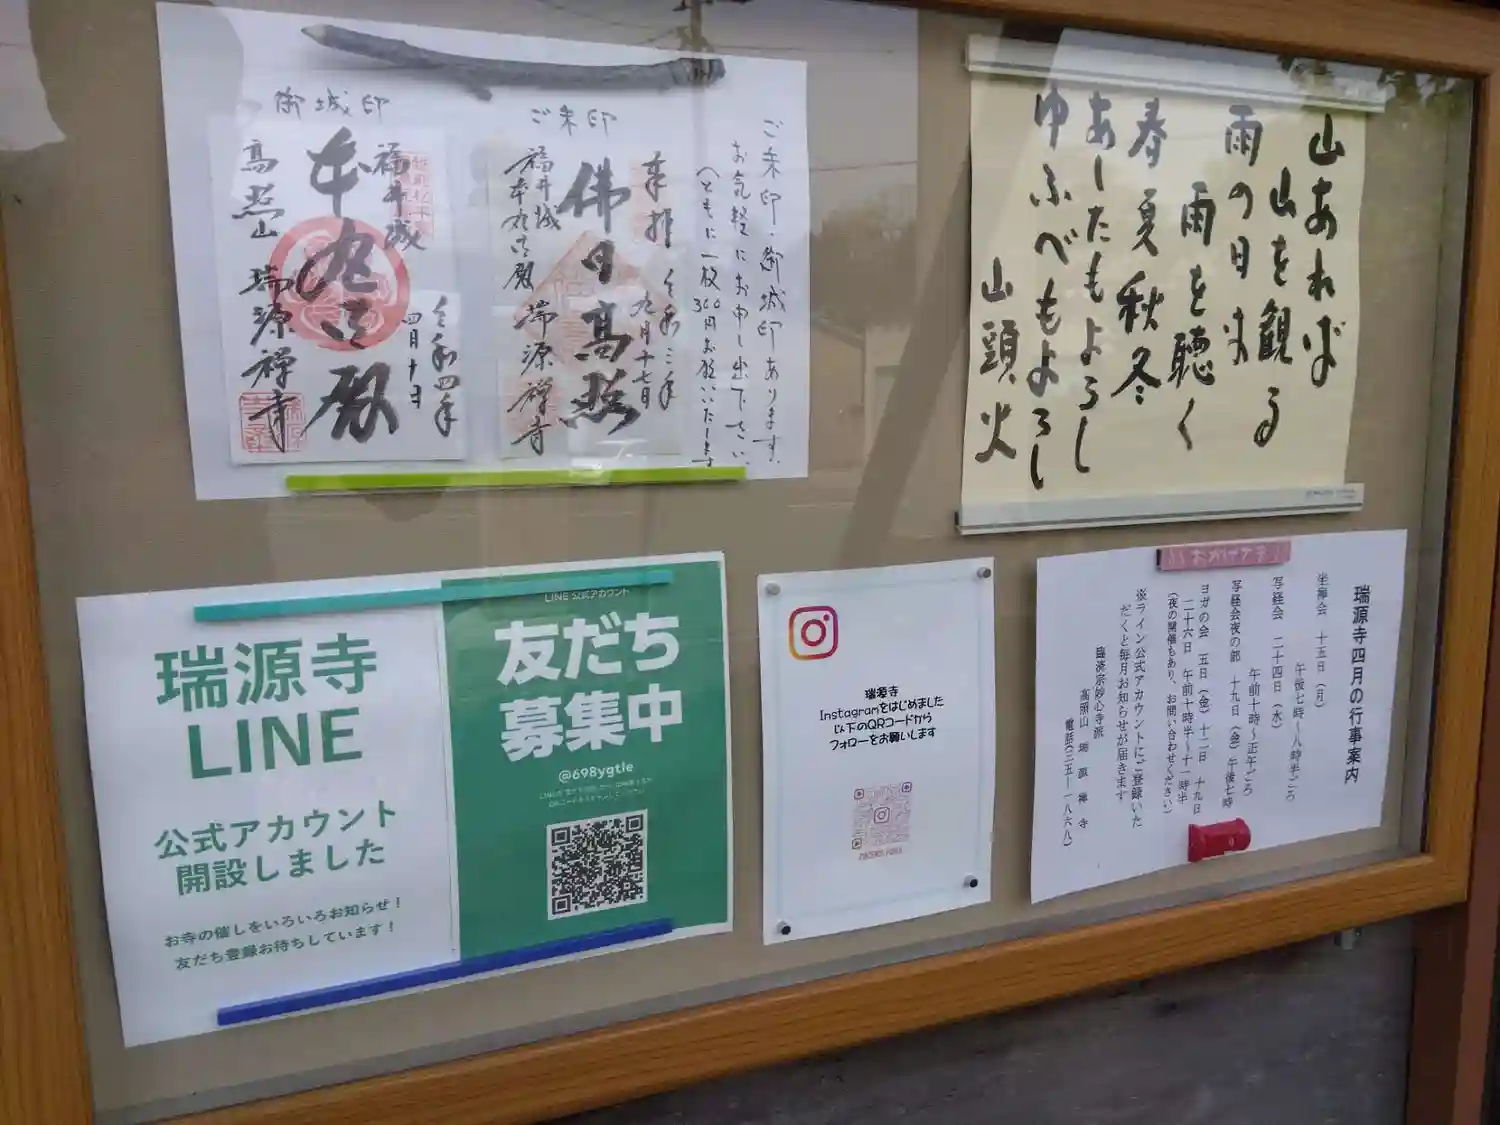 ご朱印・御城印あります。
お気軽にお申し出下さい。
(ともに一枚300円お願いいたします
ご朱印
奉拝
令和三年
九月十七日
佛日高照
福井城
本丸御殿
瑞源禅寺
御城印
福井城
本丸御殿
令和四年
四月十日
高照山
瑞源禅寺
山あれば
山を観る
雨の日は
雨を聴く
春夏秋冬
あしたもよろし
ゆふべもよろし
山頭火
瑞源寺
LINE
公式アカウント
開設しました
お寺の催しをいろいろお知らせ!
友だち登録お待ちしています!
LINE 公式アカウント
友だち
募集中
@698ygtle
瑞源寺
Instagramをはじめました
以下のQRコードから
フォローをお願いします
おかげさま
瑞源寺四月の行事案内
坐禅会 十五日(月)
午後七時~八時半ごろ
写経会 二十四日(水)
午前十時~正午ごろ
写経会夜の部 十九日(金)午後七時
ヨガの会 五日(金)十二日 十九日
二十六日 午前十時半~十一時半
(夜の開催もあり、お問い合わせください)
※ライン公式アカウントにご登録いた
だくと毎月お知らせが届きます
臨済宗妙心寺派
高照山 瑞源禅寺
電話(三五―一八六八)